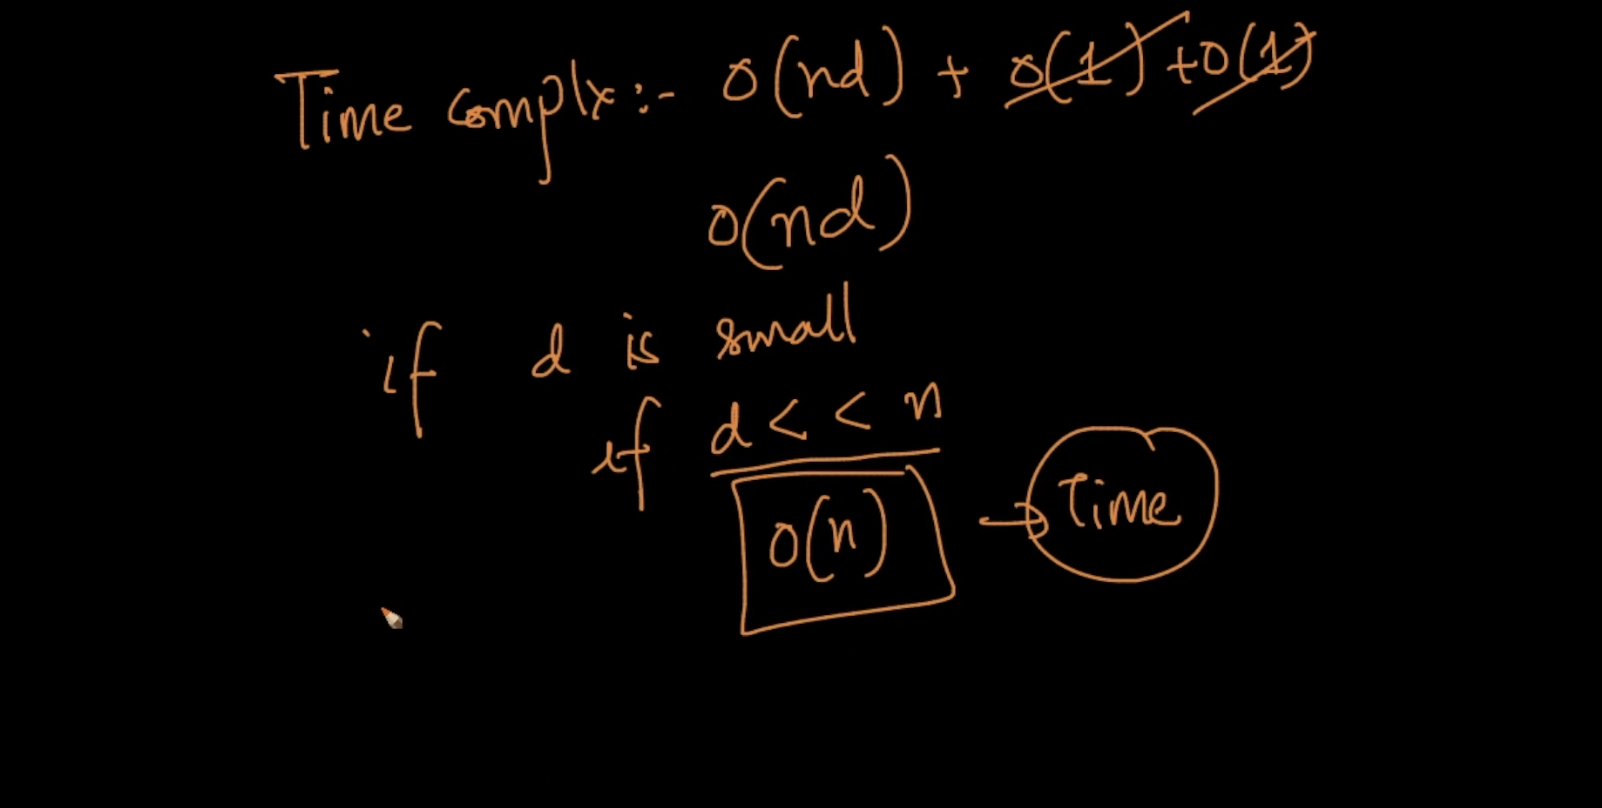 Time complx :- O(nd) + O(1) + O(1)
O(nd)
if d is small
if d < < n
O(n) → Time